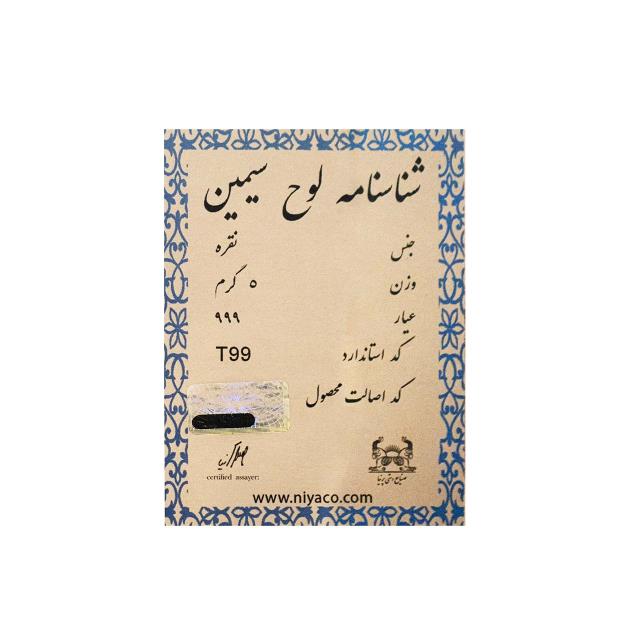 شناسنامه لوح سیمین
جنس نقره
وزن ۵ گرم
عیار ۹۹۹
کد استاندارد T99
کد اصالت محصول
certified assayer:
www.niyaco.com